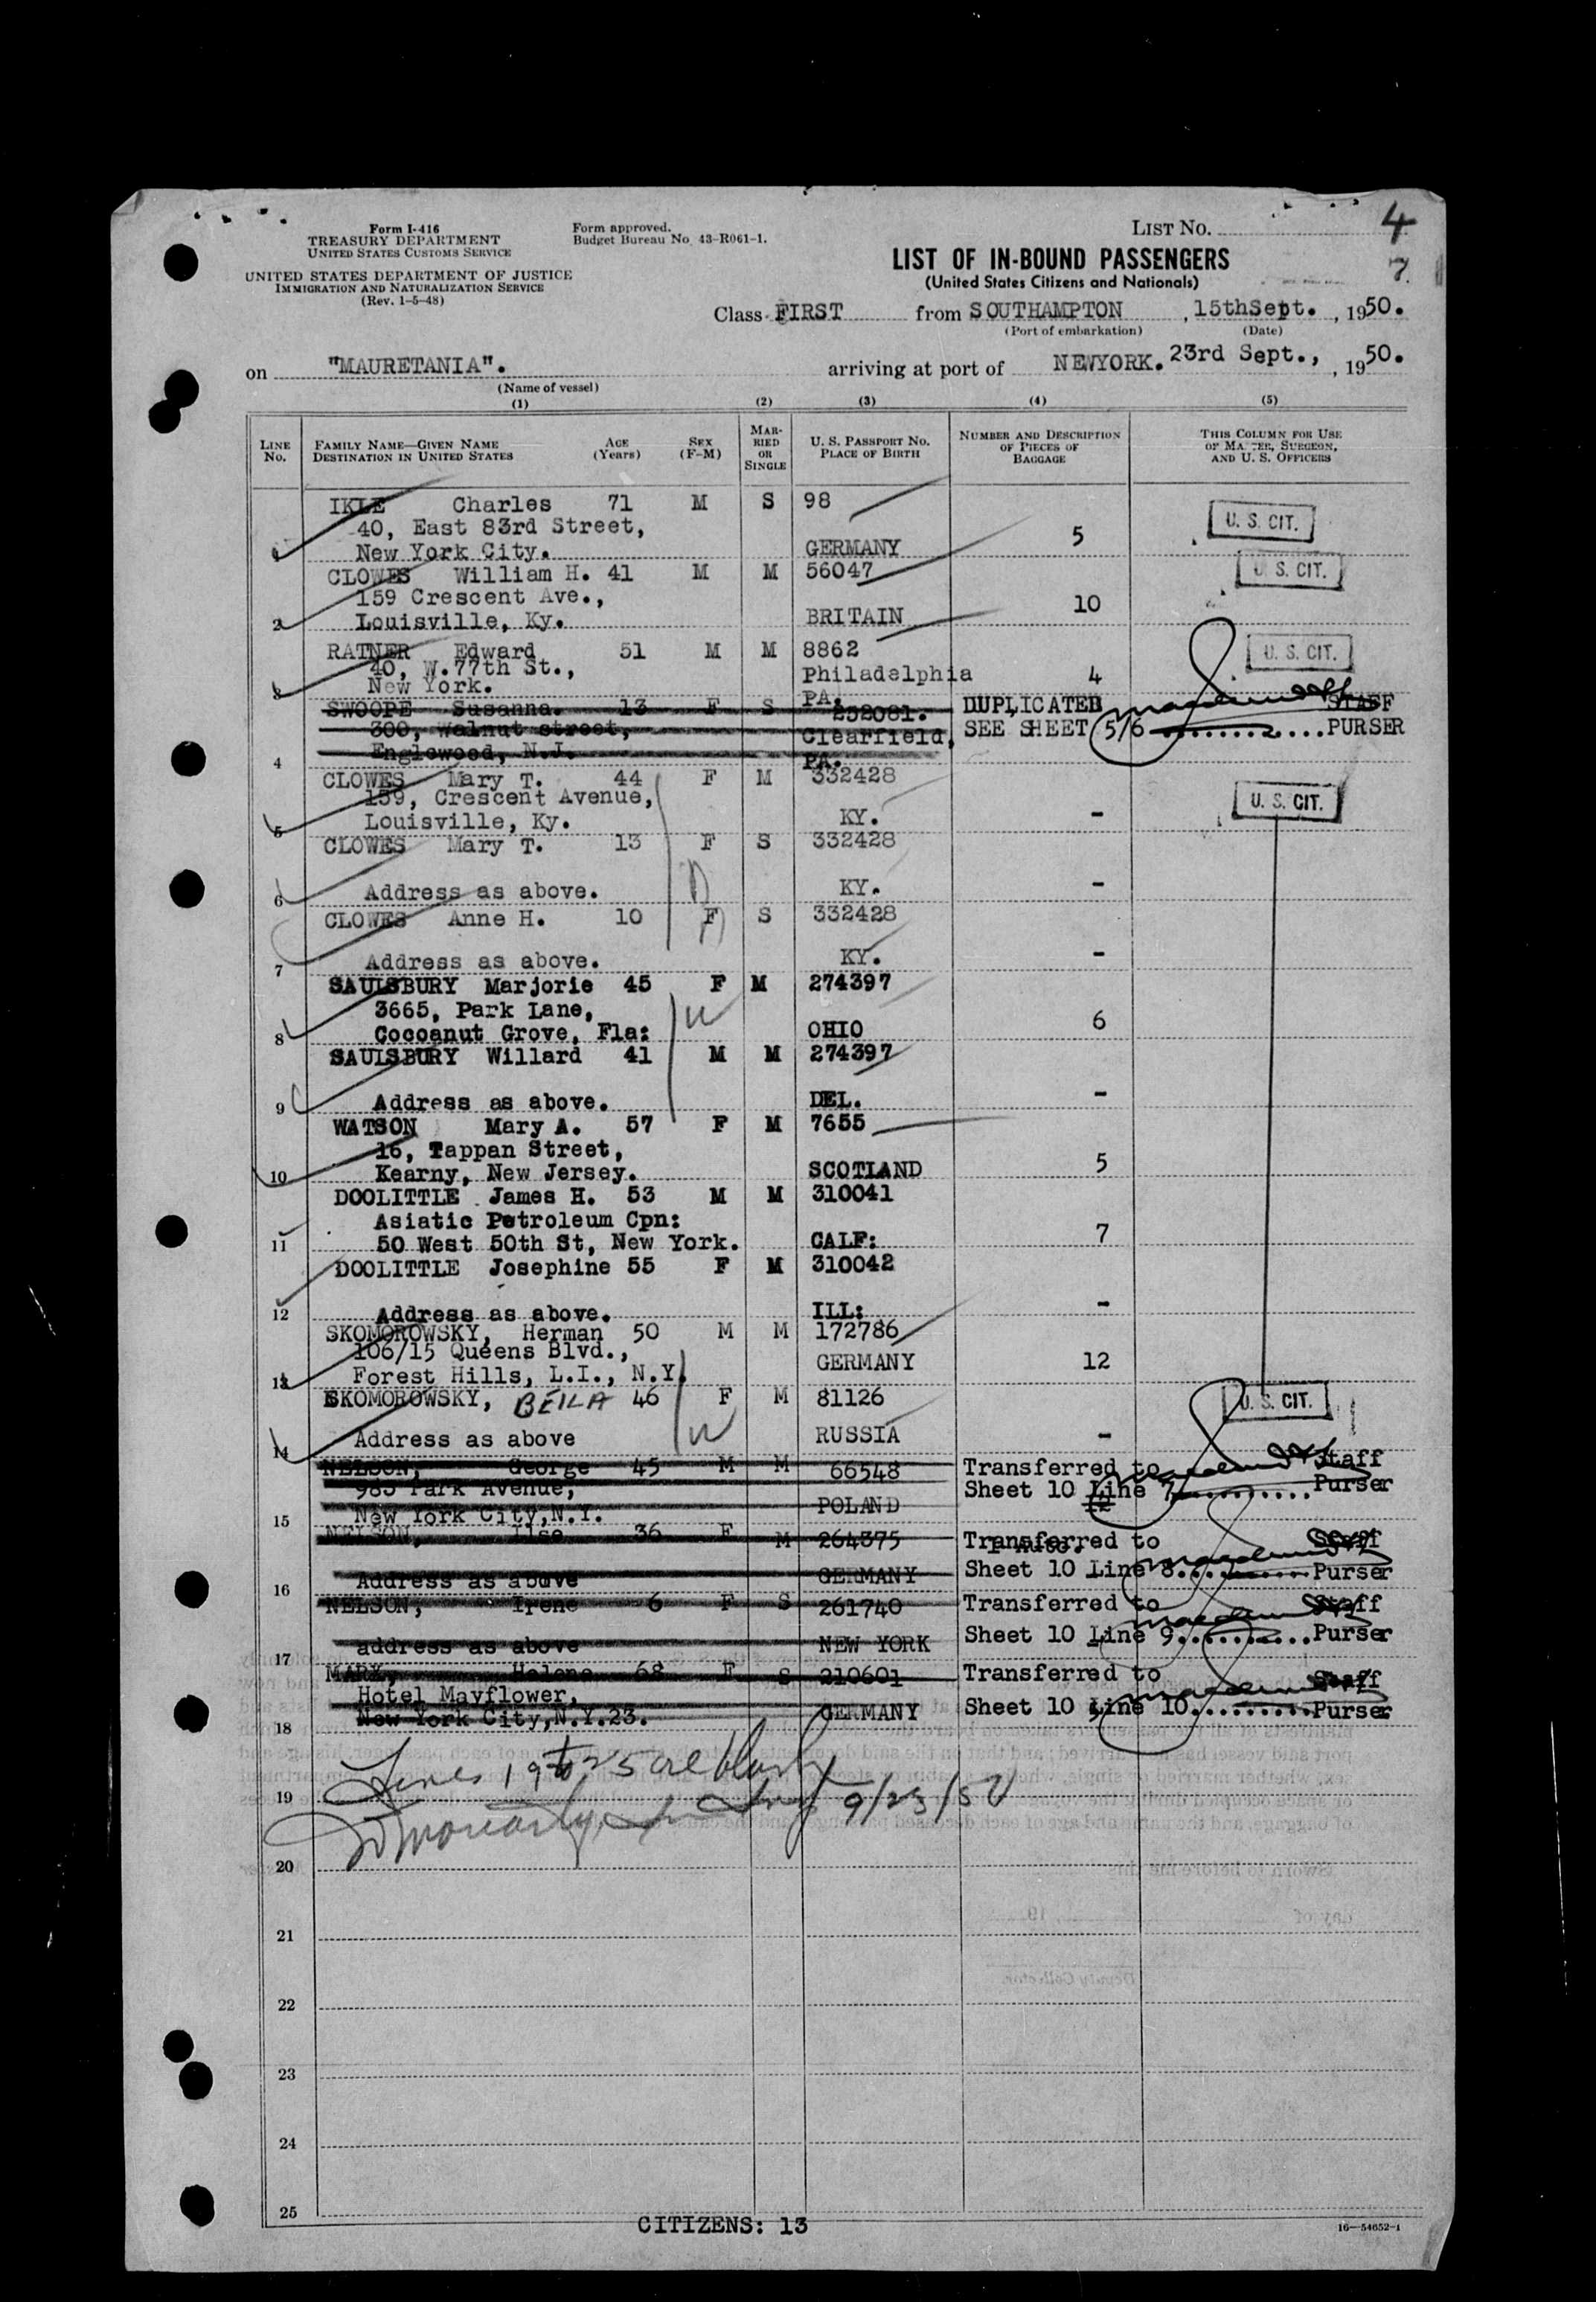 Form I-416
TREASURY DEPARTMENT
UNITED STATES CUSTOMS SERVICE
UNITED STATES DEPARTMENT OF JUSTICE
IMMIGRATION AND NATURALIZATION SERVICE
(Rev. 1-5-48)
Form approved.
Budget Bureau No. 43-R061-1.
LIST No. 4
7
LIST OF IN-BOUND PASSENGERS
(United States Citizens and Nationals)
Class FIRST from SOUTHAMPTON, 15thSept., 1950.
(Port of embarkation) (Date)
on "MAURETANIA". arriving at port of NEWYORK. 23rd Sept., 1950.
(Name of vessel)
(1) (2) (3) (4) (5)
LINE No. FAMILY NAME—GIVEN NAME DESTINATION IN UNITED STATES AGE (Years) SEX (F-M) MARRIED OR SINGLE U. S. PASSPORT No. PLACE OF BIRTH NUMBER AND DESCRIPTION OF PIECES OF BAGGAGE THIS COLUMN FOR USE OF MASTER, SURGEON, AND U. S. OFFICERS
IKLE Charles 71 M S 98
40, East 83rd Street, U. S. CIT.
1 New York City. GERMANY 5
CLOWES William H. 41 M M 56047 U. S. CIT.
159 Crescent Ave.,
2 Louisville, Ky. BRITAIN 10
RATNER Edward 51 M M 8862 U. S. CIT.
40, W.77th St., Philadelphia 4
3 New York. PA.
SWOOPE Susanna. 13 F S 252081. DUPLICATED STAFF
300, Walnut street, Clearfield, SEE SHEET 5/6 PURSER
4 Englewood, N.J. PA.
CLOWES Mary T. 44 F M 332428
159, Crescent Avenue, U. S. CIT.
5 Louisville, Ky. KY. -
CLOWES Mary T. 13 F S 332428
6 Address as above. KY. -
CLOWES Anne H. 10 F S 332428
7 Address as above. KY. -
SAULSBURY Marjorie 45 F M 274397
3665, Park Lane,
8 Cocoanut Grove, Fla: OHIO 6
SAULSBURY Willard 41 M M 274397
9 Address as above. DEL. -
WATSON Mary A. 57 F M 7655
16, Tappan Street,
10 Kearny, New Jersey. SCOTLAND 5
DOOLITTLE James H. 53 M M 310041
Asiatic Petroleum Cpn:
11 50 West 50th St, New York. CALF: 7
DOOLITTLE Josephine 55 F M 310042
12 Address as above. ILL: -
SKOMOROWSKY, Herman 50 M M 172786
106/15 Queens Blvd.,
13 Forest Hills, L.I., N.Y. GERMANY 12
SKOMOROWSKY, BEILA 46 F M 81126 U. S. CIT.
14 Address as above RUSSIA -
NELSON, George 45 M M 66548 Transferred to Staff
985 Park Avenue, Sheet 10 Line 7 Purser
15 New York City,N.Y. POLAND 12
NELSON, Ilse 36 F M 264375 Transferred to Staff
1 Auto.
16 Address as above GERMANY Sheet 10 Line 8 Purser
NELSON, Irene 6 F S 261740 Transferred to Staff
17 address as above NEW YORK Sheet 10 Line 9 Purser
MARX, Helene 68 F S 210601 Transferred to Staff
Hotel Mayflower,
18 New York City,N.Y.23. GERMANY Sheet 10 Line 10 Purser
Lines 19 to 25 are blank
19 9/23/50
20
21
22
23
24
25
CITIZENS: 13
16—54652-1